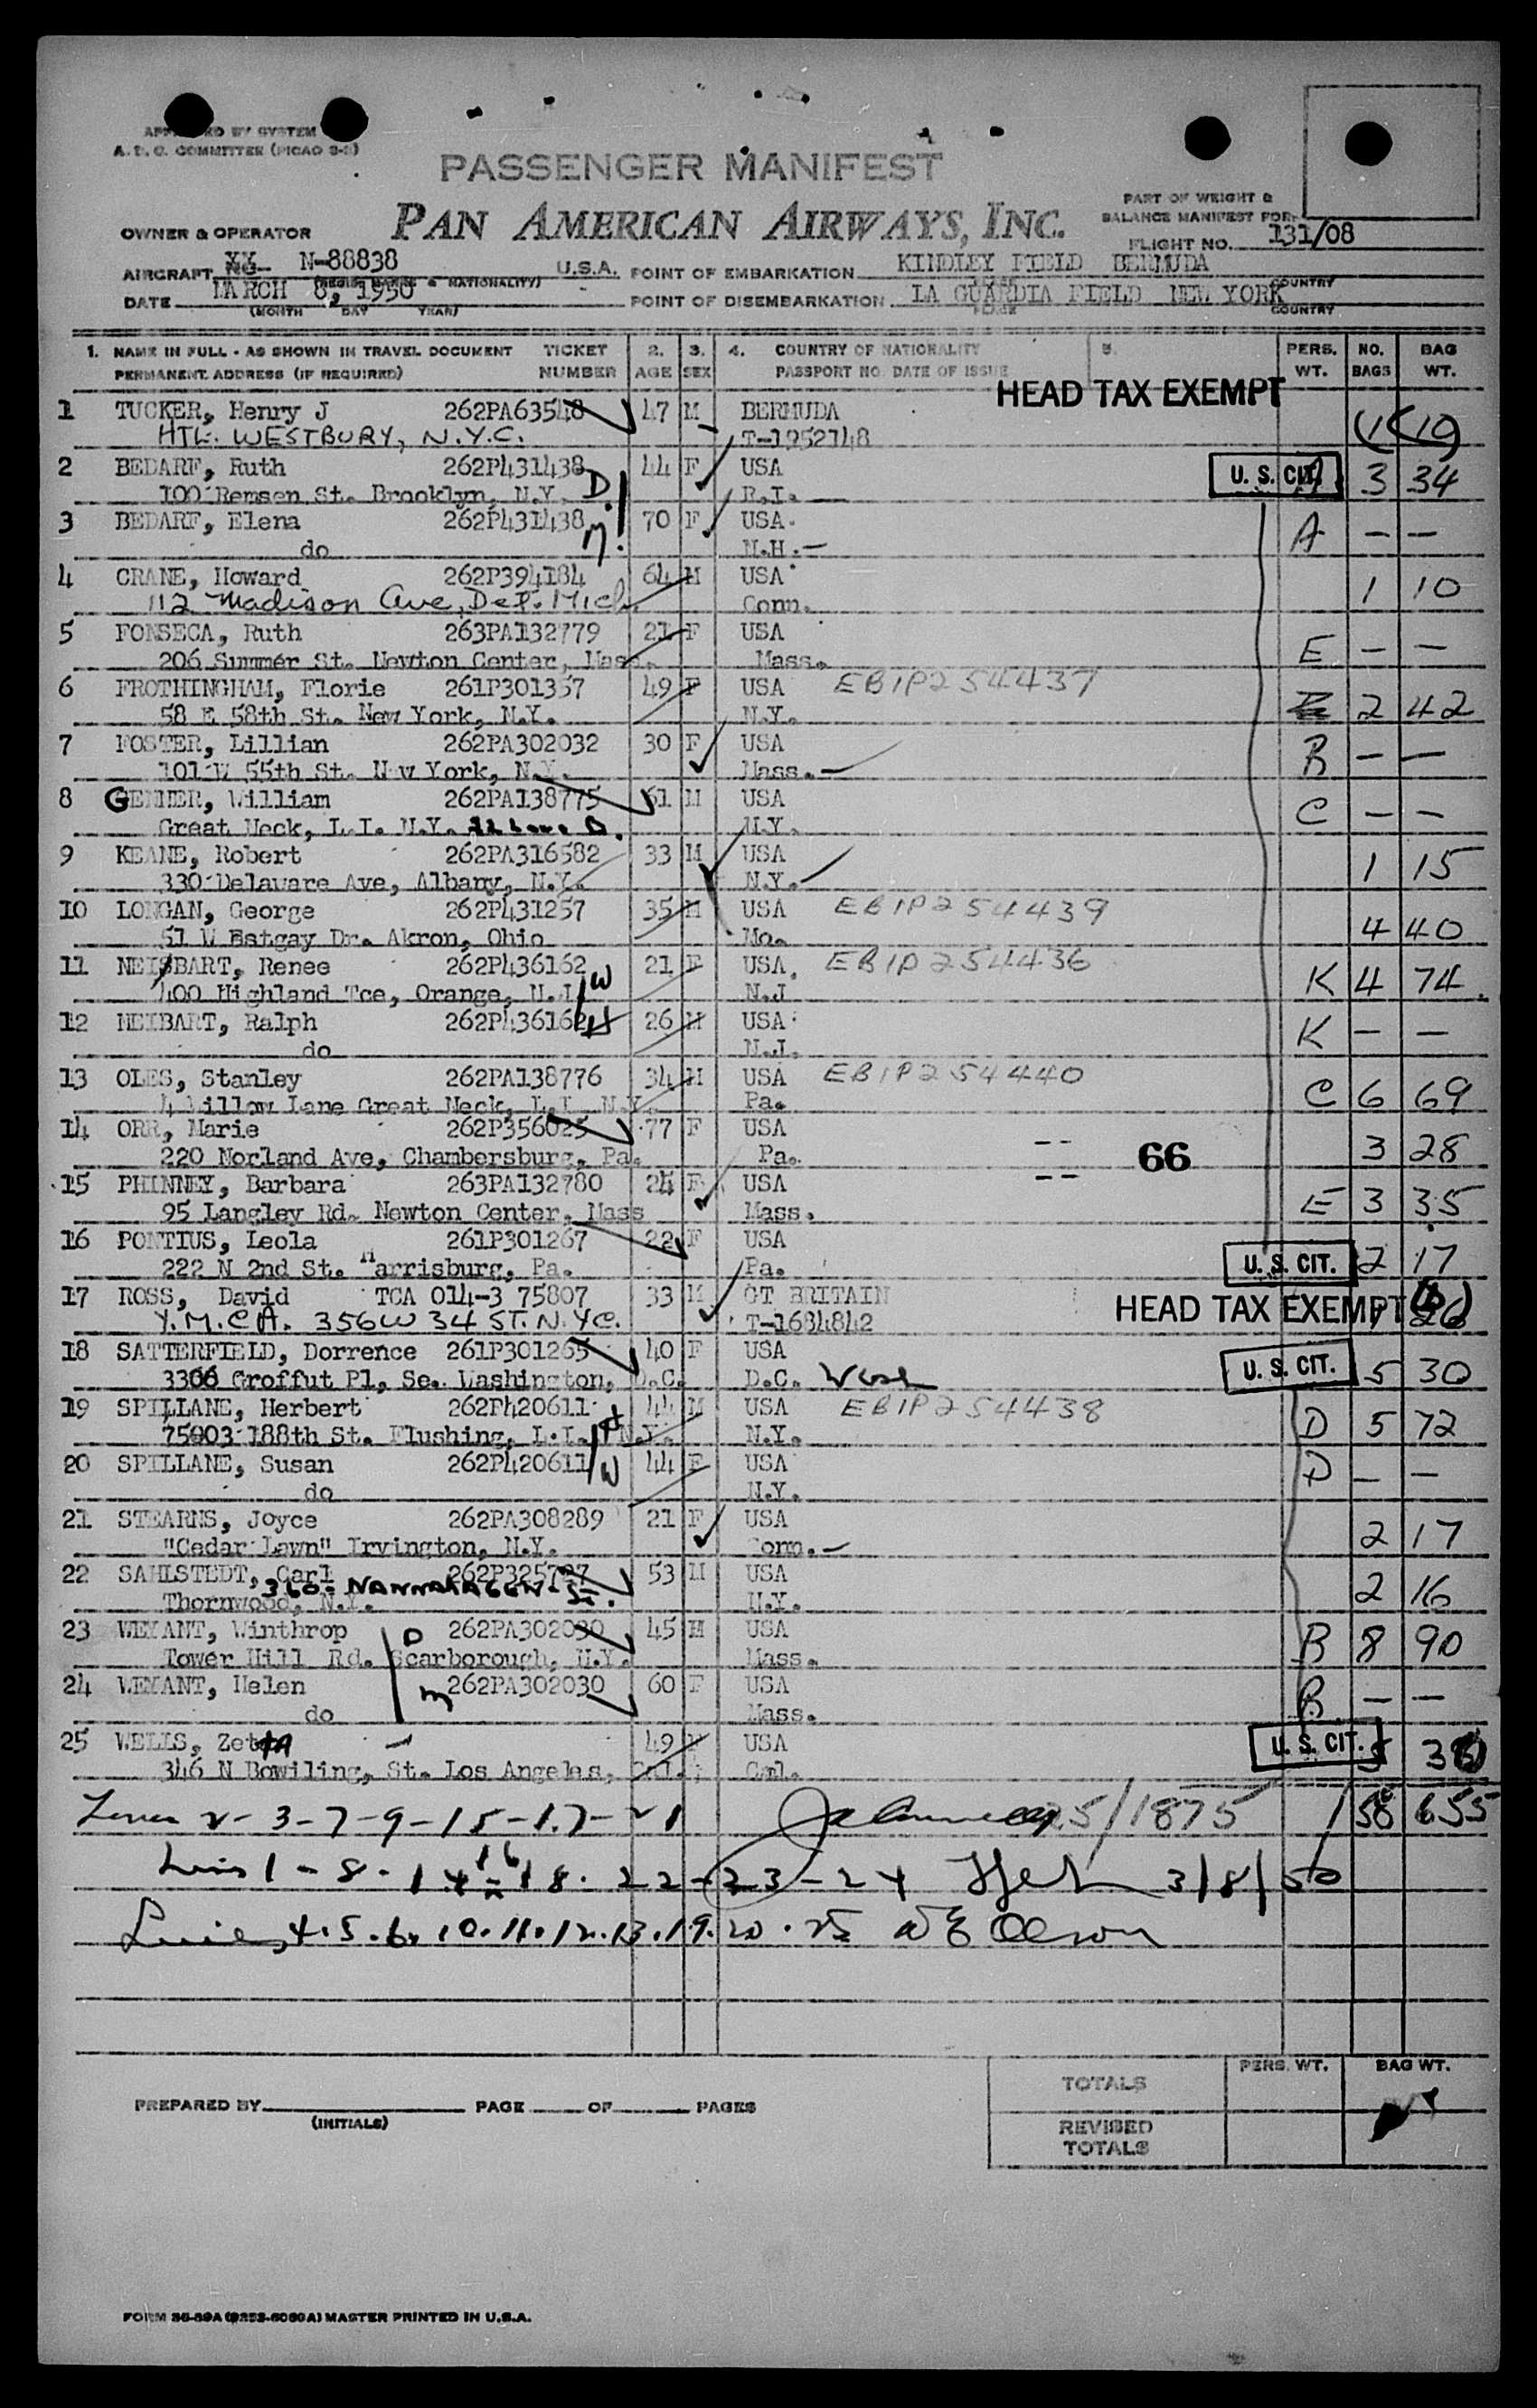 APPROVED BY SYSTEM
A. T. C. COMMITTEE (PICAO 3-2)
PASSENGER MANIFEST
PART OF WEIGHT &
BALANCE MANIFEST FOR
OWNER & OPERATOR PAN AMERICAN AIRWAYS, INC.
FLIGHT NO. 131/08
AIRCRAFT NC XX N-88838 U.S.A. POINT OF EMBARKATION KINDLEY FIELD BERMUDA
COUNTRY
DATE MARCH 8, 1950 POINT OF DISEMBARKATION LA GUARDIA FIELD NEW YORK
(MONTH DAY YEAR) PLACE COUNTRY
1. NAME IN FULL - AS SHOWN IN TRAVEL DOCUMENT TICKET 2. 3. 4. COUNTRY OF NATIONALITY 5. PERS. NO. BAG
PERMANENT ADDRESS (IF REQUIRED) NUMBER AGE SEX PASSPORT NO. DATE OF ISSUE WT. BAGS WT.
HEAD TAX EXEMPT
1 TUCKER, Henry J 262PA63548 47 M BERMUDA
HTL. WESTBURY, N.Y.C. T-1952748
2 BEDARF, Ruth 262P431438 44 F USA U. S. CIT. A 3 34
100 Remsen St. Brooklyn, N.Y. D. R.I.
3 BEDARF, Elena 262P431438 70 F USA A — —
do N.H.
4 CRANE, Howard 262P394184 64 M USA 1 10
112 Madison Ave, Det. Mich. Conn.
5 FONSECA, Ruth 263PA132779 21 F USA E — —
206 Summer St. Newton Center, Mass. Mass.
6 FROTHINGHAM, Florie 261P301357 49 F USA EB1P254437 2 42
58 E 58th St. New York, N.Y. N.Y.
7 FOSTER, Lillian 262PA302032 30 F USA B — —
101 W 55th St. New York, N.Y. Mass.
8 GENNER, William 262PA138775 61 M USA C — —
Great Neck, L.I. N.Y. N.Y.
9 KEANE, Robert 262PA316582 33 M USA 1 15
330 Delaware Ave, Albany, N.Y. N.Y.
10 LONGAN, George 262P431257 35 M USA EB1P254439 4 40
51 W Estgay Dr. Akron, Ohio Mo.
11 NEIBART, Renee 262P436162 W 21 F USA EB1P254436 K 4 74
400 Highland Tce, Orange, N.J. N.J
12 NEIBART, Ralph 262P436162 H 26 M USA K — —
do N.J.
13 OLES, Stanley 262PA138776 34 M USA EB1P254440 C 6 69
4 Willow Lane Great Neck, L.I. N.Y. Pa.
14 ORR, Marie 262P356025 77 F USA 3 28
220 Norland Ave, Chambersburg, Pa. Pa. 66
15 PHINNEY, Barbara 263PA132780 24 F USA E 3 35
95 Langley Rd. Newton Center, Mass Mass.
16 PONTIUS, Leola 261P301267 22 F USA U. S. CIT. 2 17
222 N 2nd St. Harrisburg, Pa. Pa.
17 ROSS, David TCA 014-3 75807 33 M GT BRITAIN HEAD TAX EXEMPT
Y.M.C.A. 356 W 34 ST. N.YC. T-1684842
18 SATTERFIELD, Dorrence 261P301265 40 F USA U. S. CIT. 5 30
3306 Groffut Pl, Se. Washington, D.C. D.C. Wash
19 SPILLANE, Herbert 262P420611 H 44 M USA EB1P254438 D 5 72
75003 188th St. Flushing, L.I. N.Y. N.Y.
20 SPILLANE, Susan 262P420611 W 44 F USA D — —
do N.Y.
21 STEARNS, Joyce 262PA308289 21 F USA 2 17
"Cedar Lawn" Irvington, N.Y. Conn.
22 SAHLSTEDT, Carl 262P325727 53 M USA 2 16
360 NANNAHAGEN St. Thornwood, N.Y. N.Y.
23 WEYANT, Winthrop D 262PA302030 45 M USA B 8 90
Tower Hill Rd. Scarborough, N.Y. Mass.
24 WEYANT, Helen m 262PA302030 60 F USA B — —
do Mass.
25 WELLS, Zetta 49 USA U. S. CIT.
346 N Bowiling, St. Los Angeles, Cal. Cal.
2-3-7-9-15-17-21 25/1875 58 655
1-8-14-16-18-22-23-24 3/8/50
Lines 4.5.6.10.11.12.13.19.20.25 W E Olson
TOTALS PERS. WT. BAG WT.
PREPARED BY (INITIALS) PAGE OF PAGES
REVISED
TOTALS
FORM 36-59A (9253-6060A) MASTER PRINTED IN U.S.A.